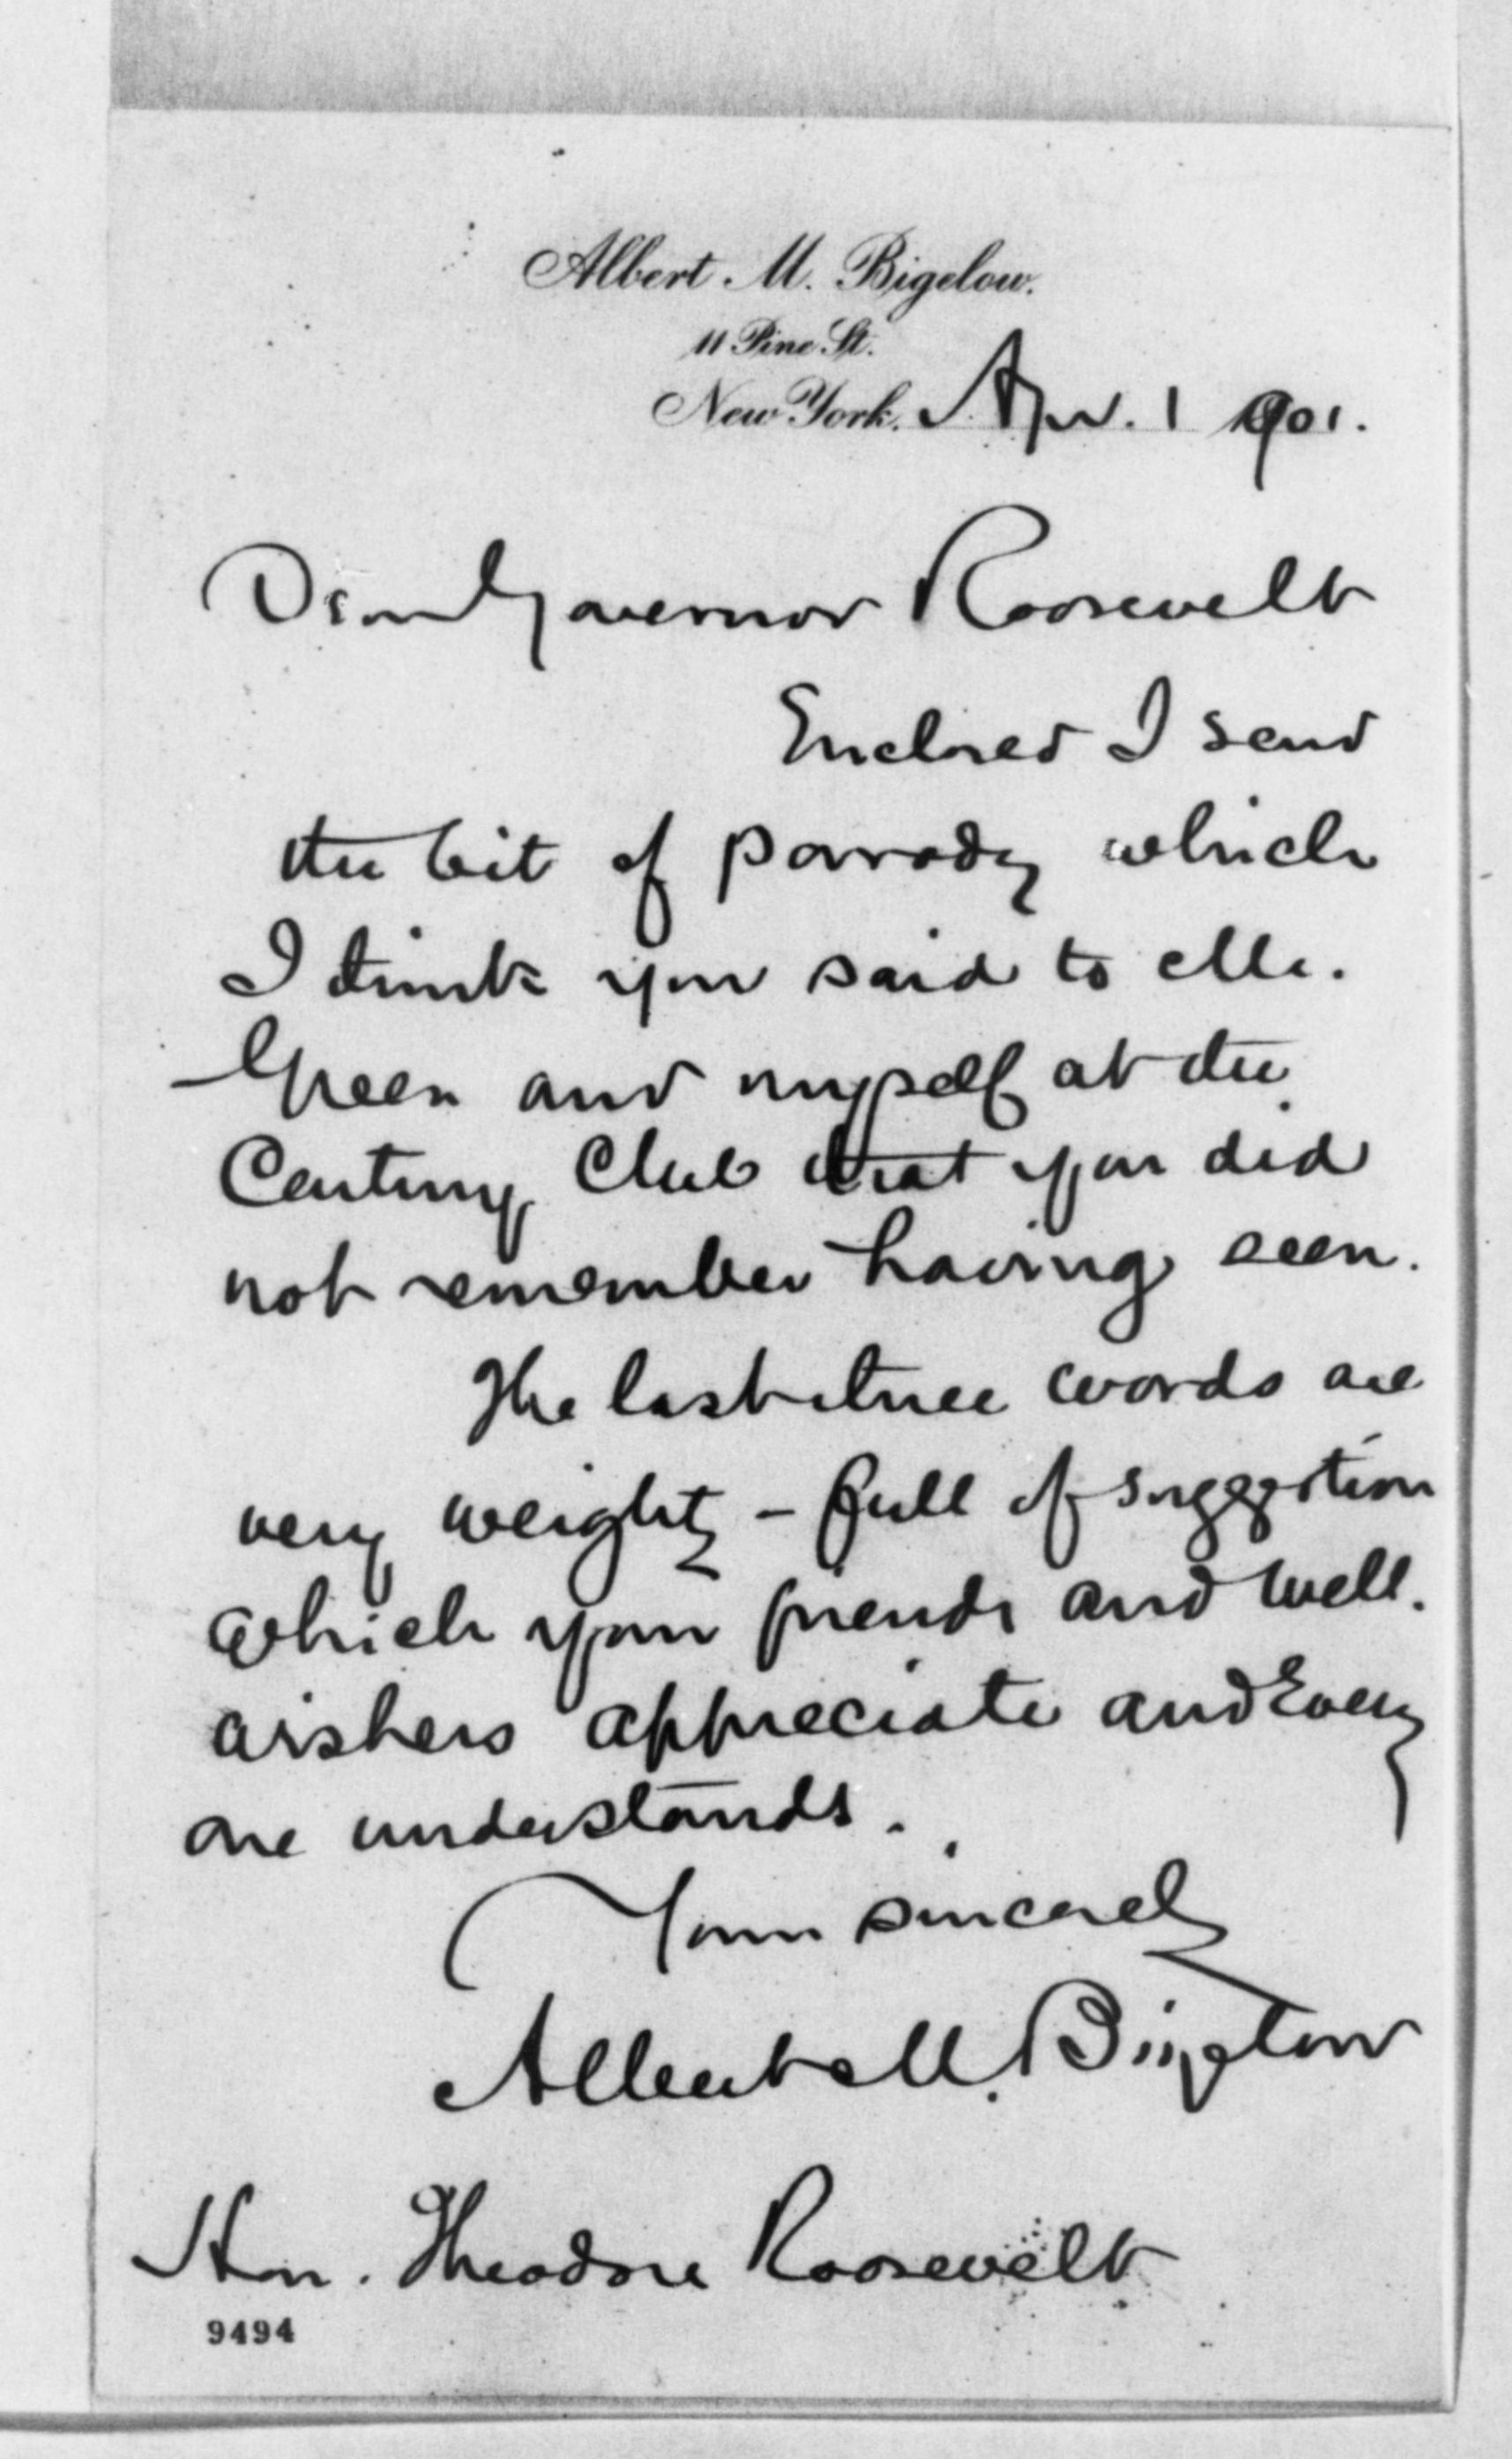 Albert M. Bigelow.
11 Pine St.
New York. Apr. 1 1901.
Dear Governor Roosevelt
Enclosed I send
the bit of parrody which
I think you said to Mr.
Green and myself at the
Century Club that you did
not remember having seen.
The last three words are
very weighty - full of suggestion
which your friends and well-
wishers appreciate and every
one understands.
Yours sincerely
Albert M. Bigelow
Hon. Theodore Roosevelt
9494